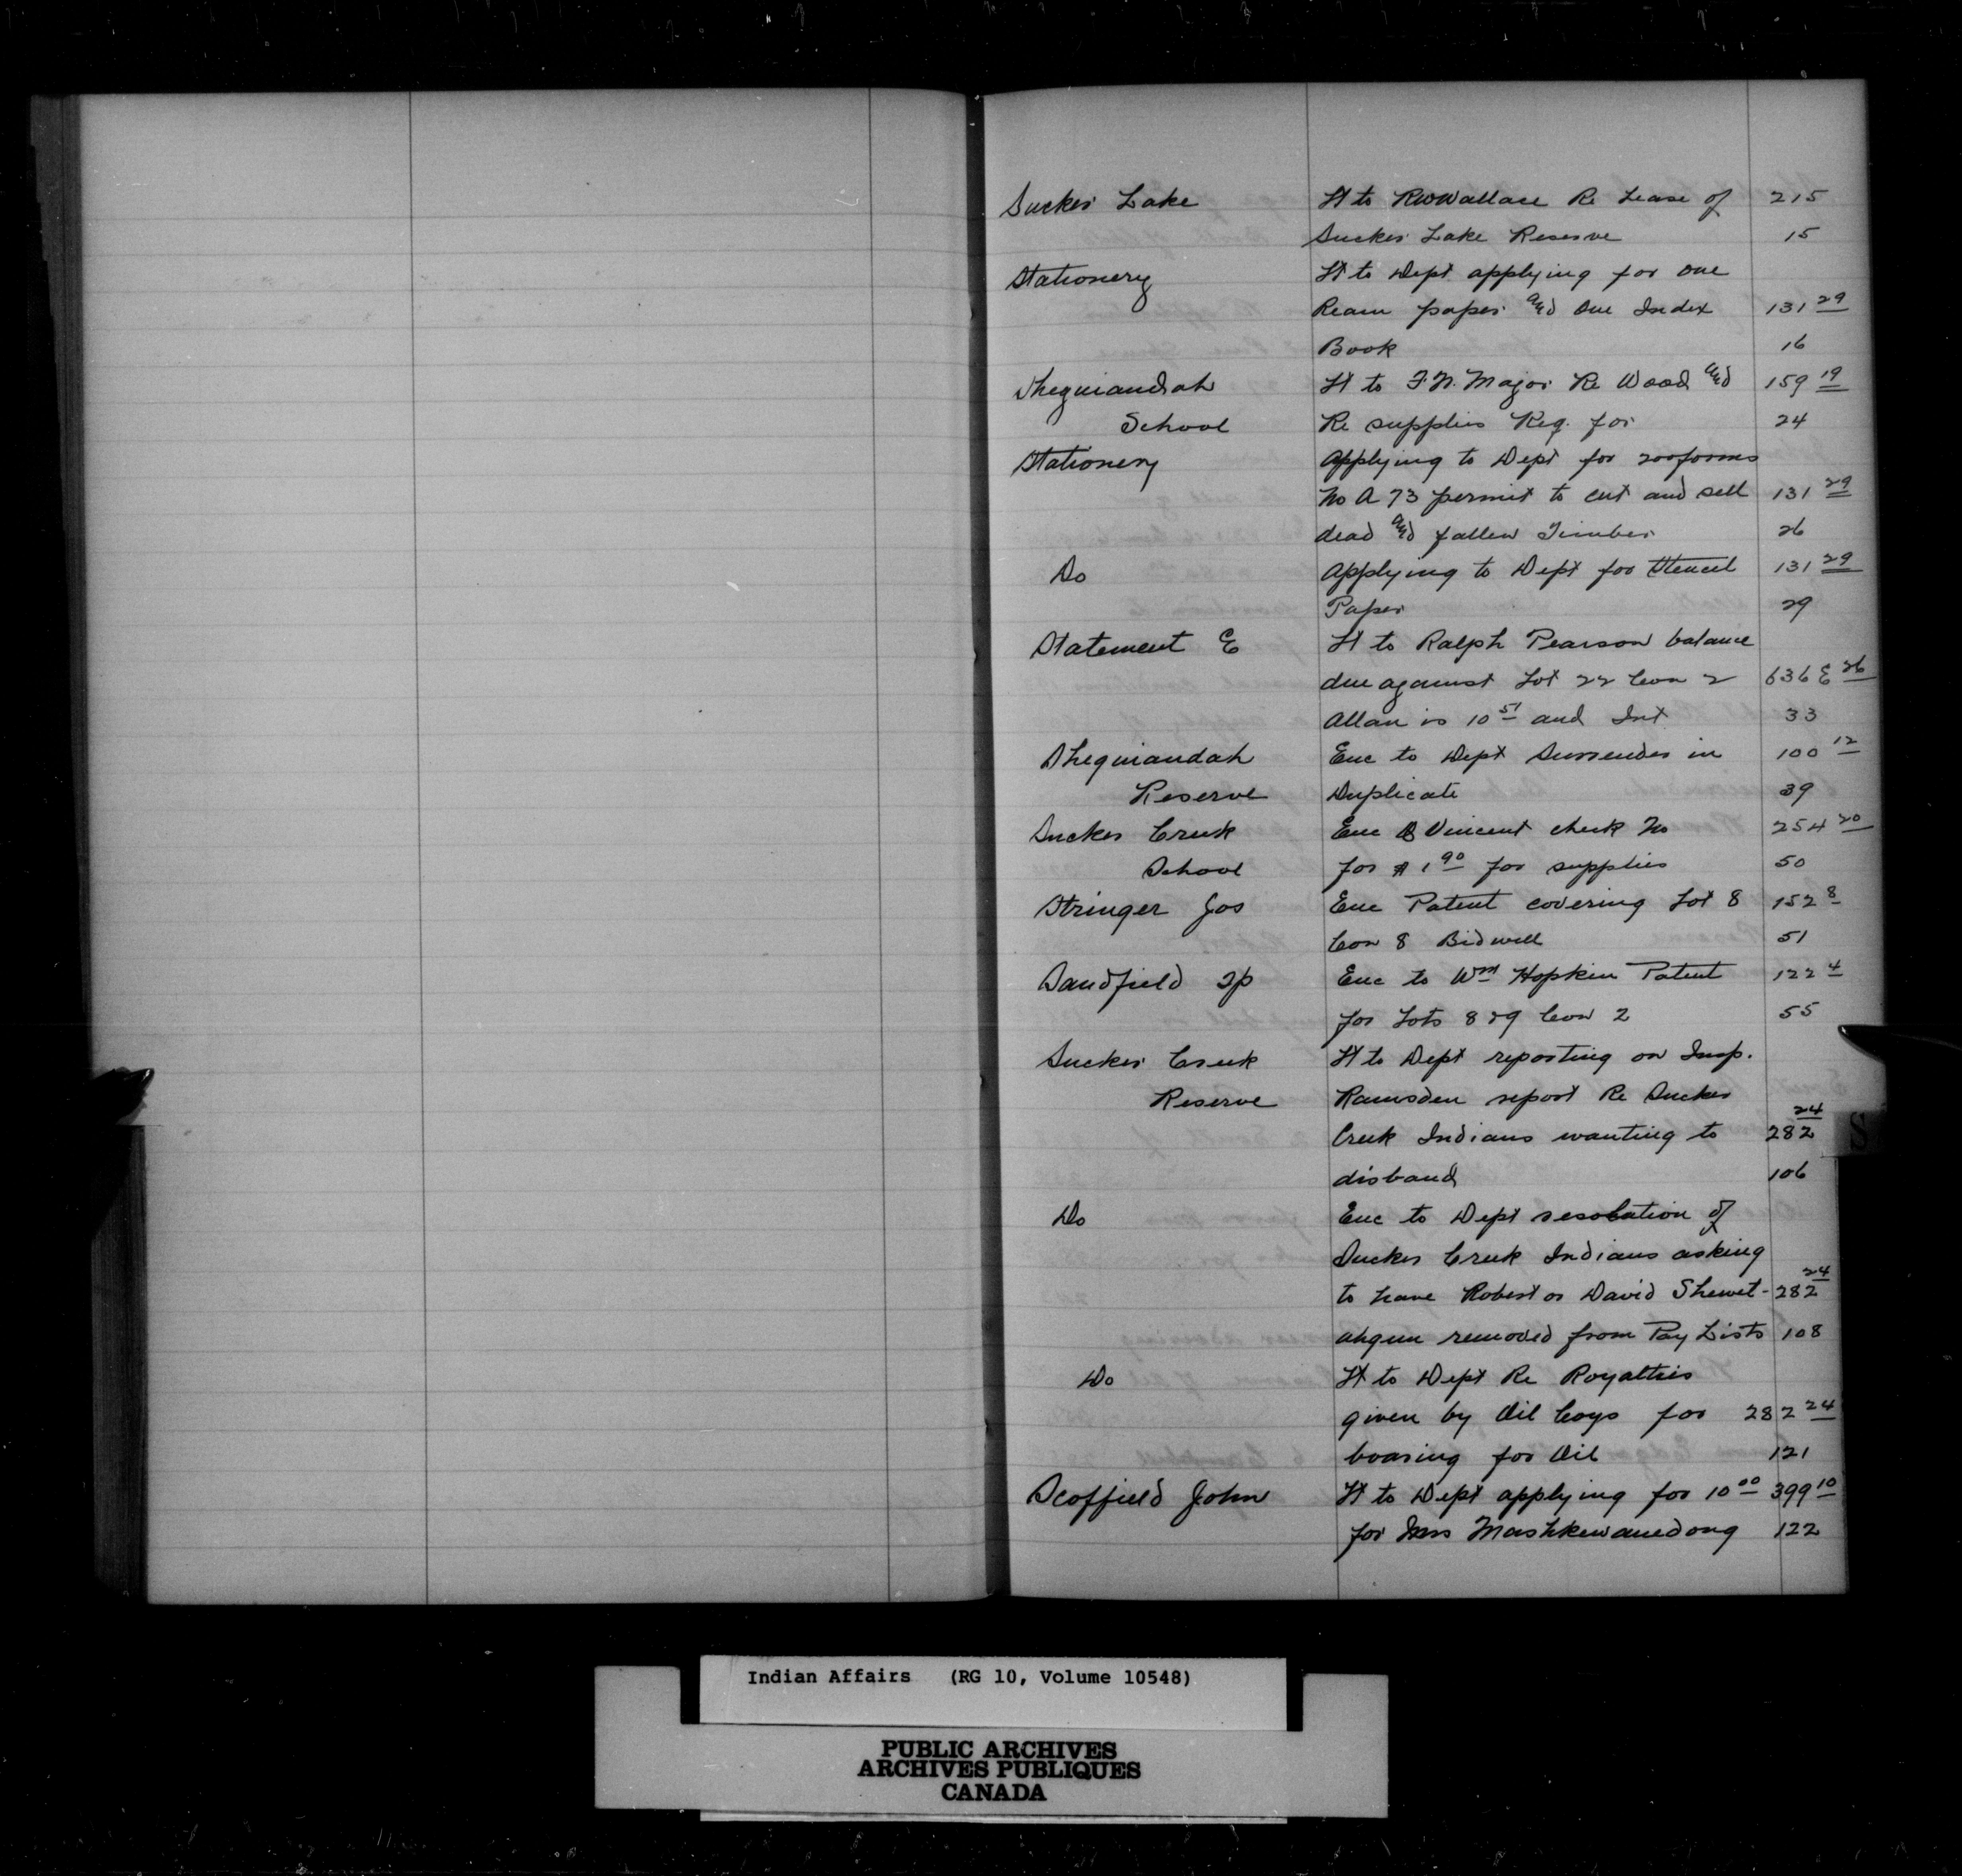 Sucker Lake Lt to RWWallace Re Lease of 215
Sucker Lake Reserve 15
Stationery Lt to Dept applying for one
Ream paper and one Index 131 29
Book 16
Sheguiandah Lt to F.N. Major Re Wood and 159 19
School Re supplies Req. for 24
Stationery Applying to Dept for 200 forms
No A 73 permit to cut and sell 131 29
dead and fallen Timber 26
Do Applying to Dept for Stencil 131 29
Paper 29
Statement E Lt to Ralph Pearson balance
due against Lot 22 Con 2 636 E 26
Allan is 10 51 and Int 33
Sheguiandah Enc to Dept Surrender in 100 12
Reserve Duplicate 39
Sucker Creek Enc Vincent check No 254 20
School for $ 1 90 for supplies 50
Stringer Jos Enc Patent covering Lot 8 152 8
Con 8 Bidwell 51
Sandfield Tp Enc to Wm Hopkin Patent 122 4
for Lots 8 & 9 Con 2 55
Sucker Creek Lt to Dept reporting on Insp.
Reserve Ramsden report Re Sucker
Creek Indians wanting to 282 24
disband 106
Do Enc to Dept resolution of
Sucker Creek Indians asking
to have Robert or David Shewet- 282 24
ahgun removed from Pay Lists 108
Do Lt to Dept Re Royalties
given by Oil Coys for 282 24
boaring for Oil 121
Scoffield John Lt to Dept applying for 10 00 399 10
for Mrs Mashkewanedong 122
S
Indian Affairs (RG 10, Volume 10548)
PUBLIC ARCHIVES
ARCHIVES PUBLIQUES
CANADA